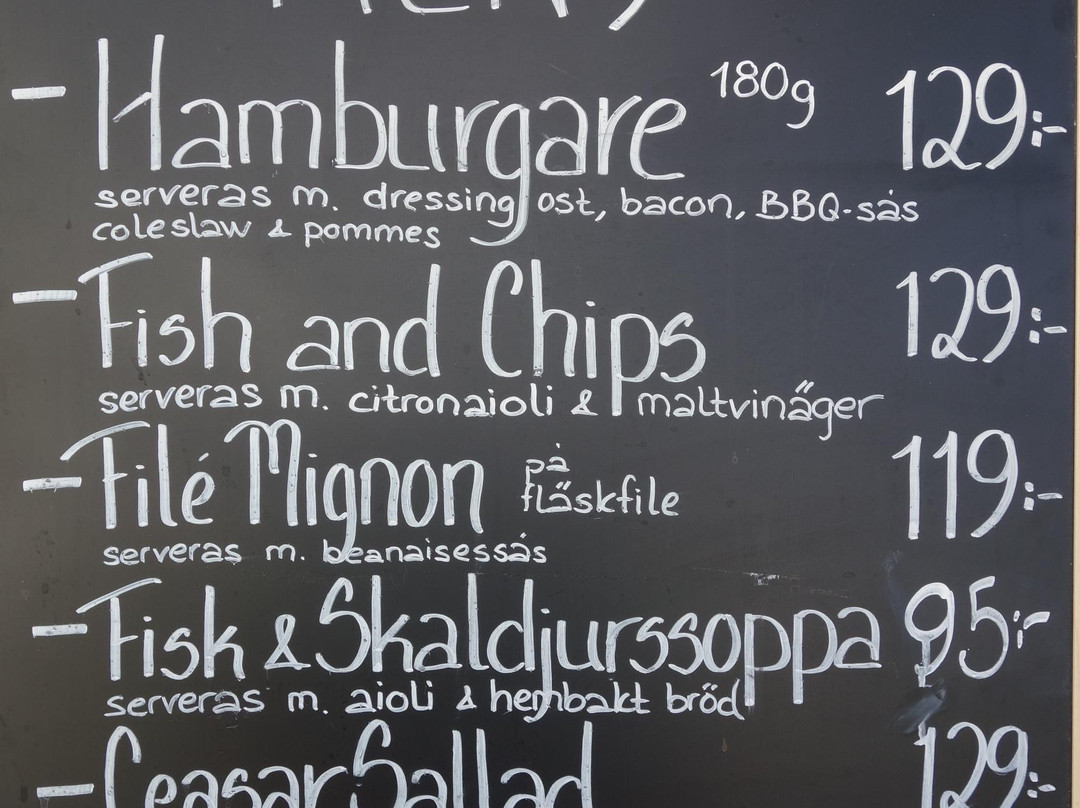 MENY
- Hamburgare 180g 129:-
serveras m. dressing ost, bacon, BBQ-sås
coleslaw & pommes
- Fish and Chips 129:-
serveras m. citronaioli & maltvinäger
- Filé Mignon på fläskfile 119:-
serveras m. beanaisessås
- Fisk & Skaldjurssoppa 95:-
serveras m. aioli & hembakt bröd
- Ceasar Sallad 129:-